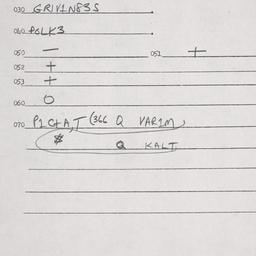 030 GRIVIN83S
040 POLK3
050 — 051 +
052 +
053 +
060 O
070 P1CHA,T (366 Q VAR1M)
* Q KALT